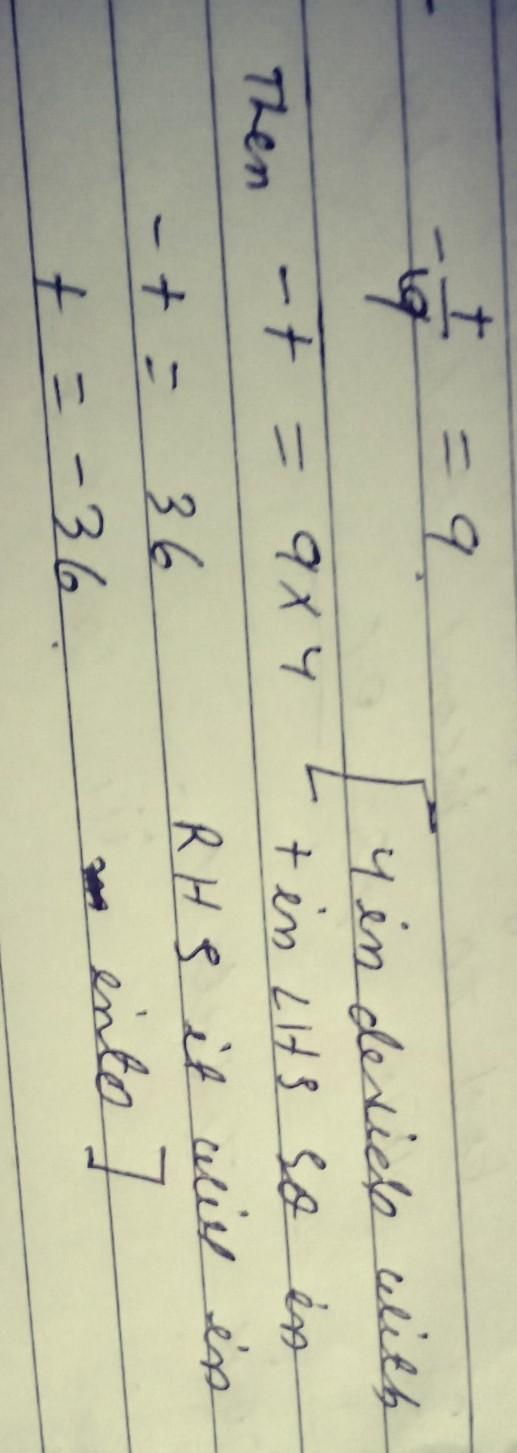 - t/4 = 9
[ 4 in devied with
Then - t = 9 x 4
t in LHS so in
- t = 36
RHS it will in
t = - 36
into ]